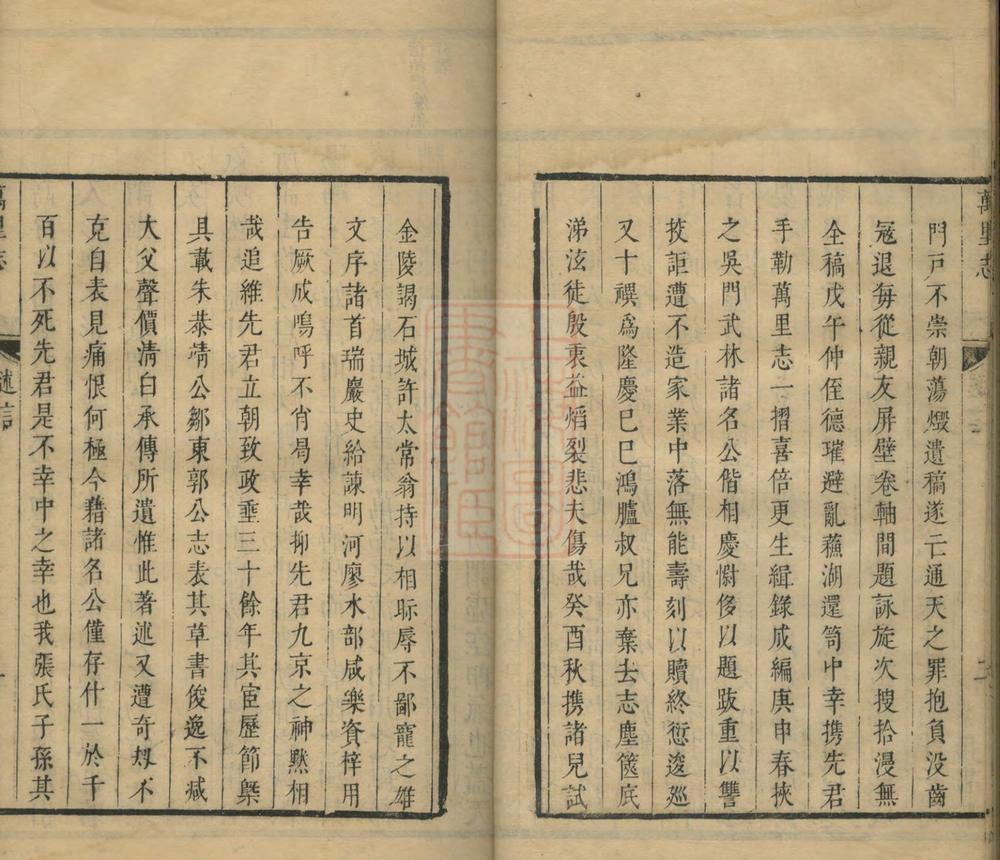 萬里志
二
門戸不崇朝蕩燬遺稿遂亡通天之罪抱負没齒
冦退每從親友屏壁卷軸間題詠旋次搜拾漫無
全稿戊午仲侄德璀避亂蕪湖還笥中幸携先君
手勒萬里志一摺喜倍更生緝錄成編庚申春挾
之吳門武林諸名公偕相慶慰侈以題跋重以讐
挍詎遭不造家業中落無能壽刻以贖終愆逡廵
又十禩爲隆慶己巳鴻臚叔兄亦棄去志塵篋底
涕泫徒殷衷益熖裂悲夫傷哉癸酉秋携諸兒試
金陵謁石城許太常翁持以相眎辱不鄙寵之雄
文序諸首瑞巖史給諫明河廖水部咸樂資梓用
告厥成嗚呼不肖局幸哉抑先君九京之神黙相
哉追維先君立朝致政垂三十餘年其宦歷節槩
具載朱恭靖公鄒東郭公志表其草書俊逸不减
大父聲價淸白承傳所遺惟此著述又遭竒刼不
克自表見痛恨何極今藉諸名公僅存什一於千
百以不死先君是不幸中之幸也我張氏子孫其
萬里志
述言